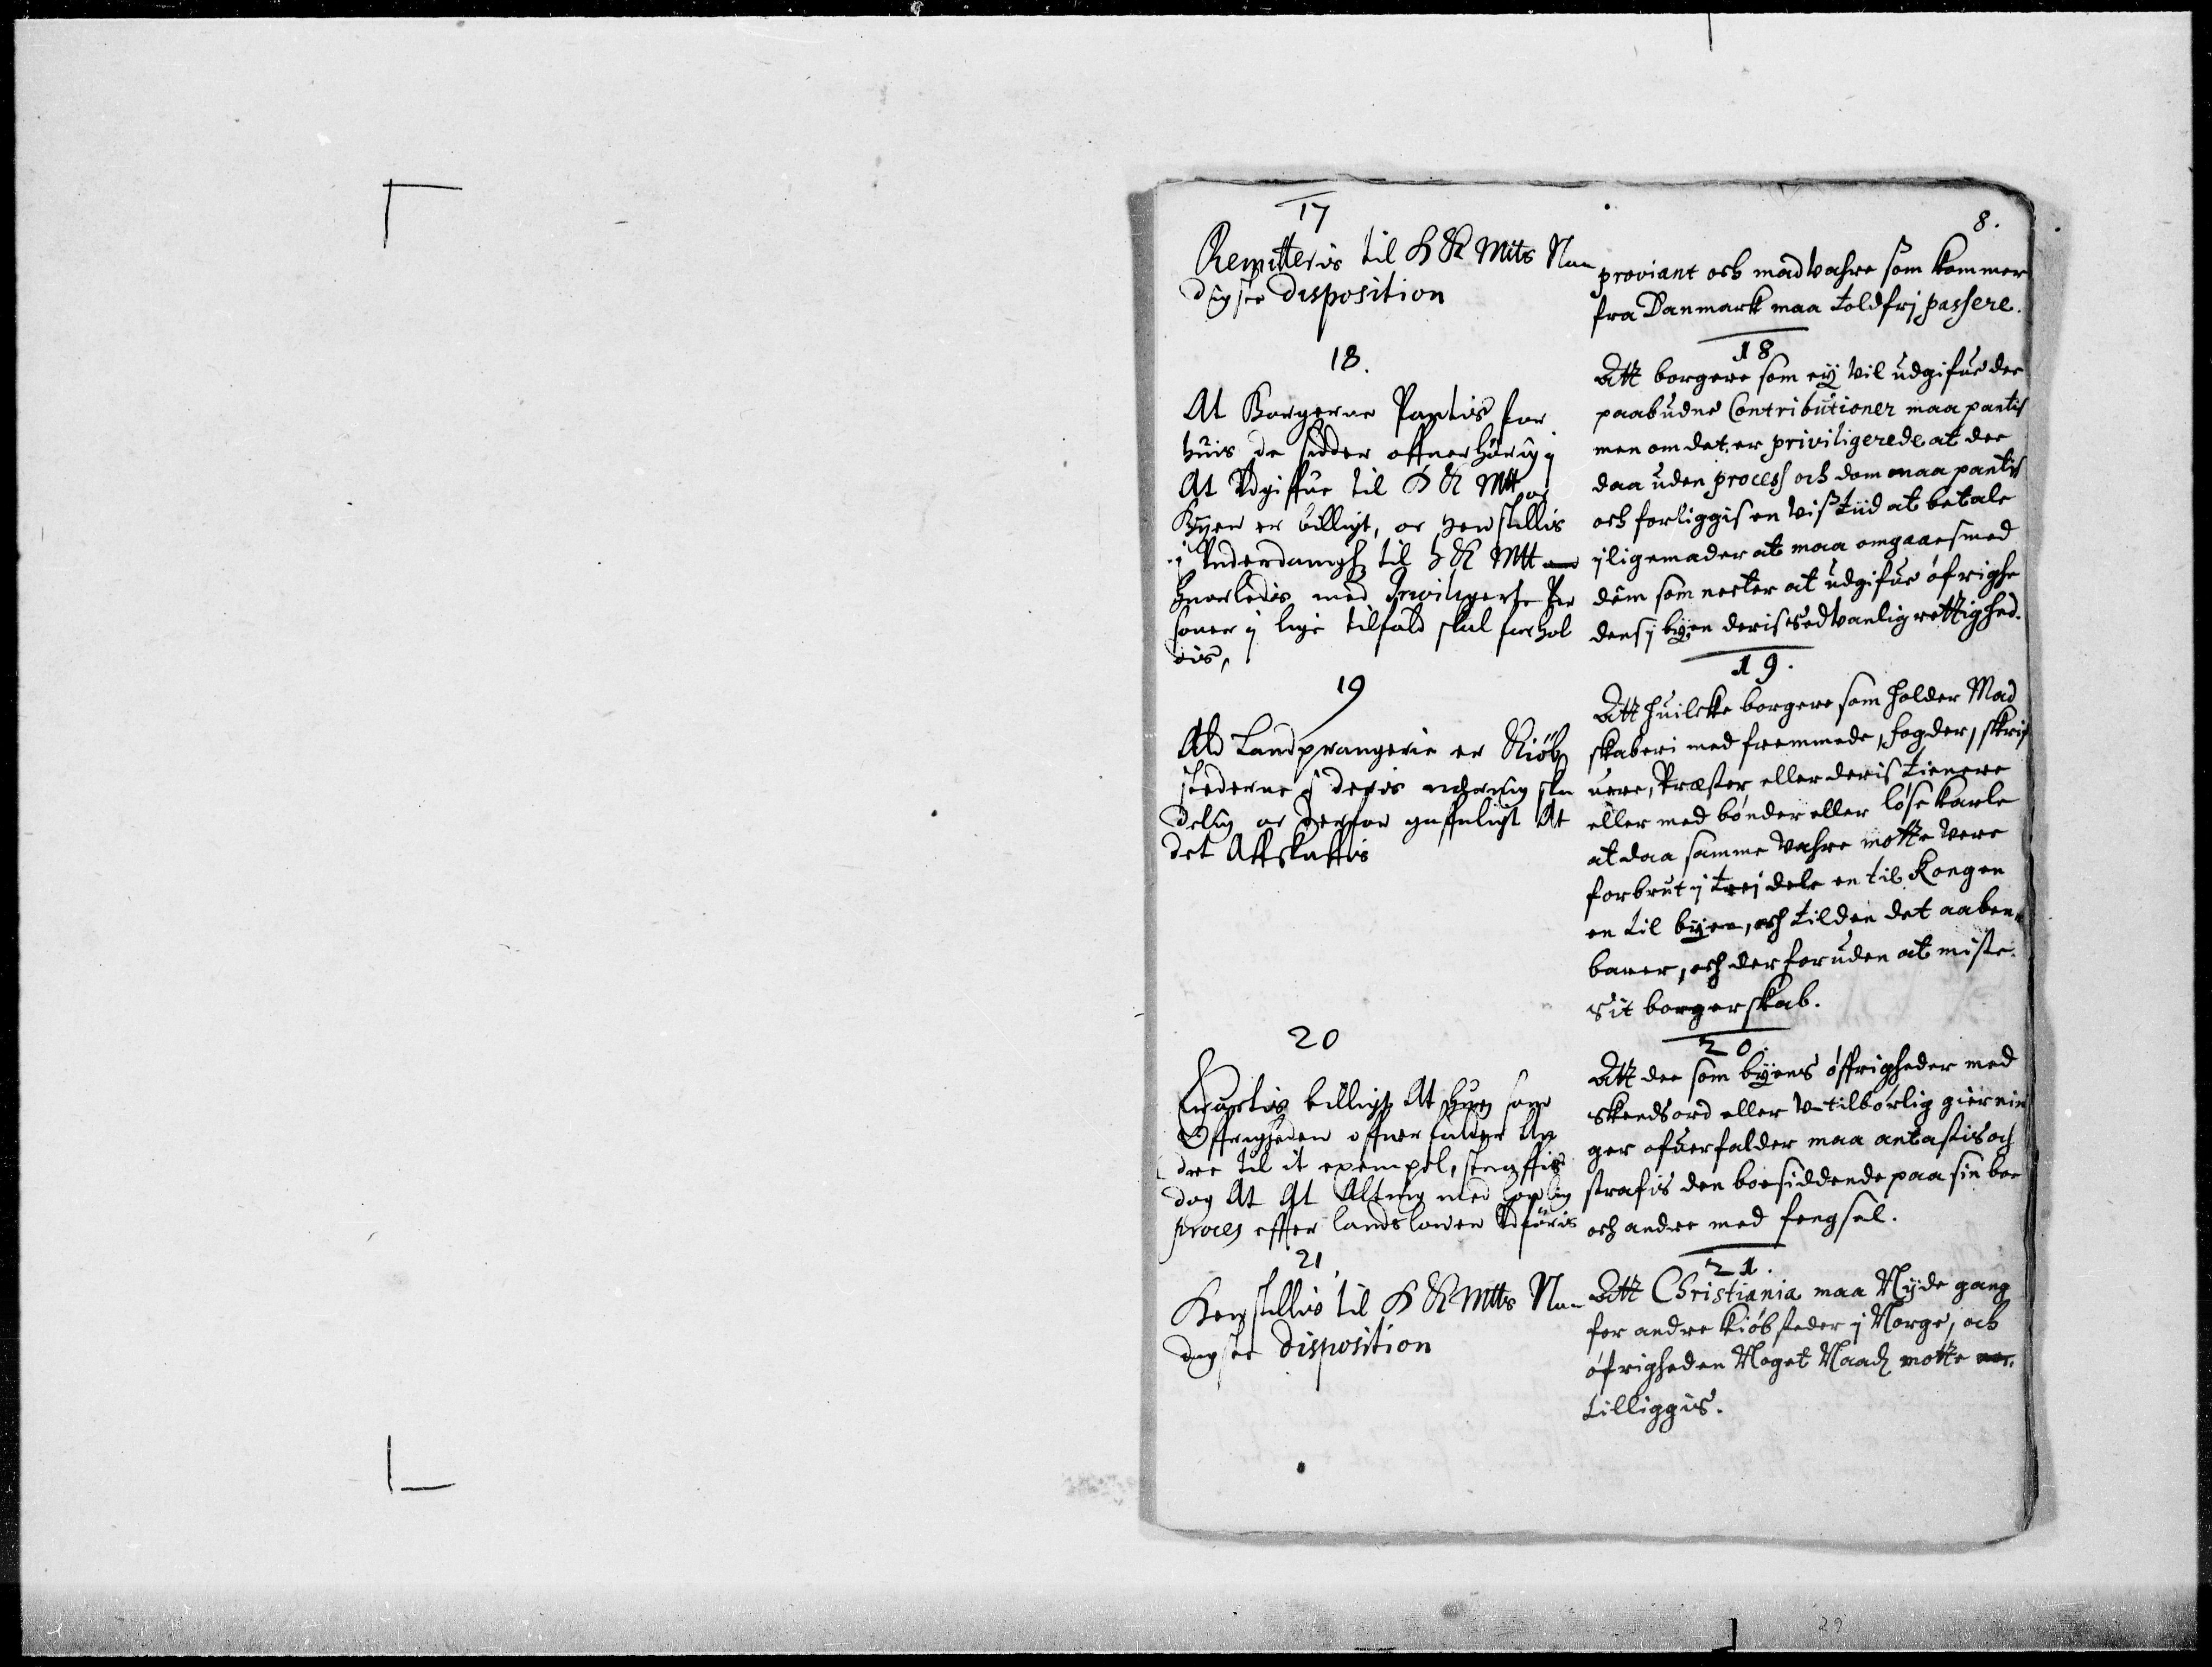 17
Remitteris til H K Mtts Naa
digste disposition
18.
At Borgerne Pantis for
huis de sidder offuerhörig i
At Udgiffue til H K Mtt oc
Byen er billigt, oc henstillis
i Underdanigh til H K Mtt
huorledis med Priviligerte Per
soner i lige tilfald skal forhol
dis,
19
Ald Landprangerie er Kiöb
stederne i deris nehring ska
delig oc derfor gaffnligt At
det Affskaffis
20
Eractis billigt At huo som
Öffrigheden offuerfalder An
dre til it exempel, straffis
dog At At Alting med lovlig
proces effter landslowen Udföris
21
Henstillis til H K Mtts Naa
digste disposition
8.
proviant och madvahre som kommer
fra Danmark maa toldfrj passere.
18
Att borgere som ey vil udgifue dee
paabudne Contributioner maa pantis
men om det er priviligerede at dee
daa uden process och dom maa pantis
och forliggis en viss tiid at betale
j ligemader at maa omgaaes med
dem som necter at udgifue öfrighe
dens j byen deris sedvanlig rettighed.
19.
Att huilcke borgere som holder Mad
skaberi med fremmede, fogder, skrif
uere, Præster eller deris tienere
eller med bönder eller löse karle
at daa samme vahre motte vere
forbrut j trej dele en til Kongen
en til byen, och til den det aaben
barer, och der foruden at miste
Sit borgerskab.
20.
Att dee som byens öffrigheder med
skendsord eller v-tilbörlig giernin
ger ofuerfalder maa antastis och
strafis den boesiddende paa sin boe
och andre med fengsel.
21.
Att Christiania maa Nyde gang
for andre kiöbsteder j Norge, och
öfrigheden Noget Naade motte
tilliggis.
29